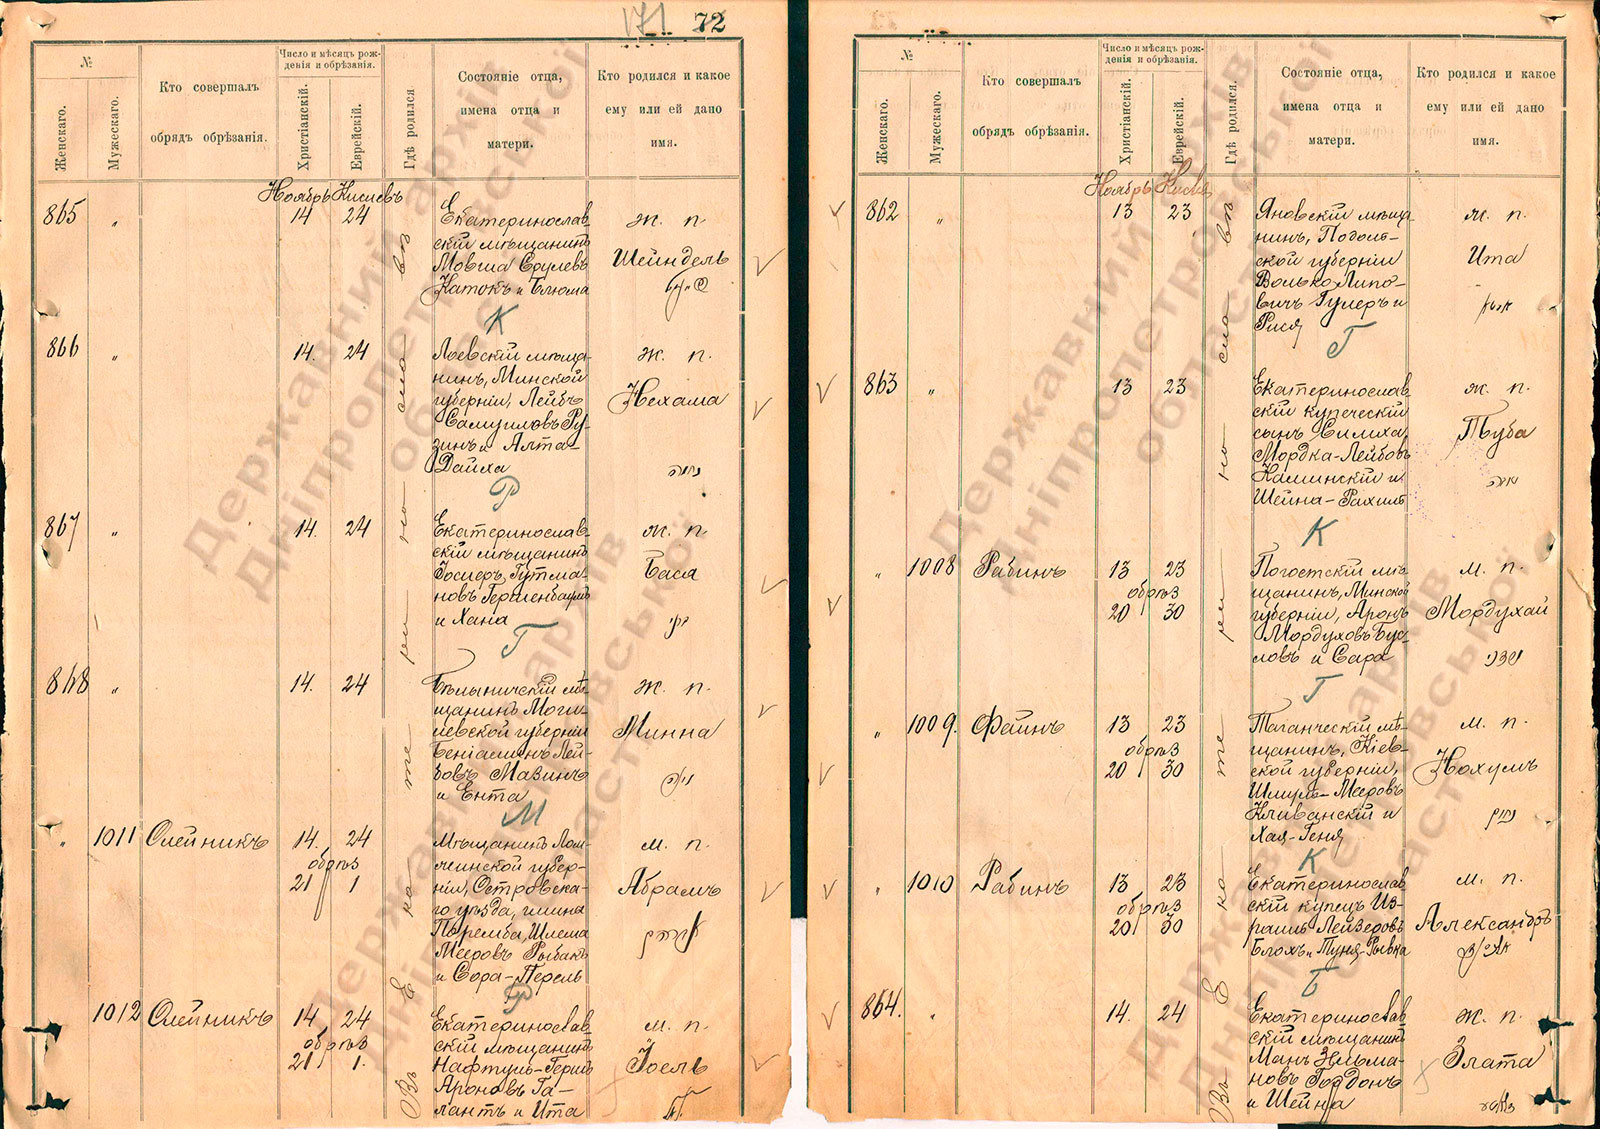 171 72
№
Женскаго.
Мужескаго.
Кто совершалъ
обрядъ обрѣзанія.
Число и мѣсяцъ рож-
денія и обрѣзанія.
Христіанскій.
Еврейскій.
Гдѣ родился
Состояніе отца,
имена отца и
матери.
Кто родился и какое
ему или ей дано
имя.
Ноябрь Кислевъ
Въ Екатеринославѣ
865 „ 14 24
Екатеринослав-
скій мѣщанинъ
Мовша Срулевъ
Катокъ и Блюма
ж. п.
Шейндель
К
866 „ 14. 24
Лоевскій мѣща-
нинъ, Минской
губерніи, Лейбъ
Самуиловъ Ру-
зинъ и Алта-
Дайха
ж. п.
Нехама
נחמה
Р
867 „ 14 24
Екатеринослав-
скій мѣщанинъ
Іосифъ Гутма-
новъ Гершенбаумъ
и Хана
ж. п.
Бася
Г
868 „ 14. 24
Бѣлыничскій мѣ-
щанинъ Моги-
левской губерніи
Беніаминъ Лей-
бовъ Мазинъ
и Ента
ж. п.
Минна
М
„ 1011 Олейникъ 14. 24
обрѣз
21 1
Мѣщанинъ Лом-
жинской губер-
ніи, Островска-
го уѣзда, гмина
Поремба, Шлема
Мееровъ Рыбакъ
и Сора-Перель
м. п.
Абрамъ
אברהם
Р
1012 Олейникъ 14 24
обрѣз
21 1.
Екатеринослав
скій мѣщанинъ
Нафтуль-Герш
Ароновъ Га-
лантъ и Ита
м. п.
Іоель
№
Женскаго.
Мужескаго.
Кто совершалъ
обрядъ обрѣзанія.
Число и мѣсяцъ рож-
денія и обрѣзанія.
Христіанскій.
Еврейскій.
Гдѣ родился.
Состояніе отца,
имена отца и
матери.
Кто родился и какое
ему или ей дано
имя.
Ноябрь Кислев
Въ Екатеринославѣ
862 „ 13 23
Яновскій мѣща-
нинъ, Подоль-
ской губерніи
Волько Липо-
вичъ Гулеръ и
Рися
ж. п.
Ита
Г
863 „ 13 23
Екатеринослав
скій купеческій
сынъ Симха
Мордка-Лейбовъ
Каминскій и
Шейна-Рахиль
ж. п.
Туба
К
„ 1008 Рабинъ 13 23
обрѣз
20 30
Погостскій мѣ-
щанинъ, Минской
губерніи, Аронъ
Мордуховъ
и Сара
м. п.
Мордухай
מרדכי
Г
„ 1009. Файнъ 13 23
обрѣз
20 30
Таганческій мѣ-
щанинъ, Кіев-
ской губерніи,
Шмуль-Мееровъ
Кливанскій и
Хая-Геня
м. п.
Нохумъ
נחום
К
„ 1010 Рабинъ 13 23
обрѣз
20 30
Екатеринослав
скій купецъ Из-
раиль Лейзеровъ
Блохъ и Туня-Рывка
м. п.
Александръ
Б
864. „ 14. 24
Екатеринослав
скій мѣщанинъ
Манъ Зельма-
новъ Гордонъ
и Шейна
ж. п.
Злата
Державний архів
Дніпропетровської
області